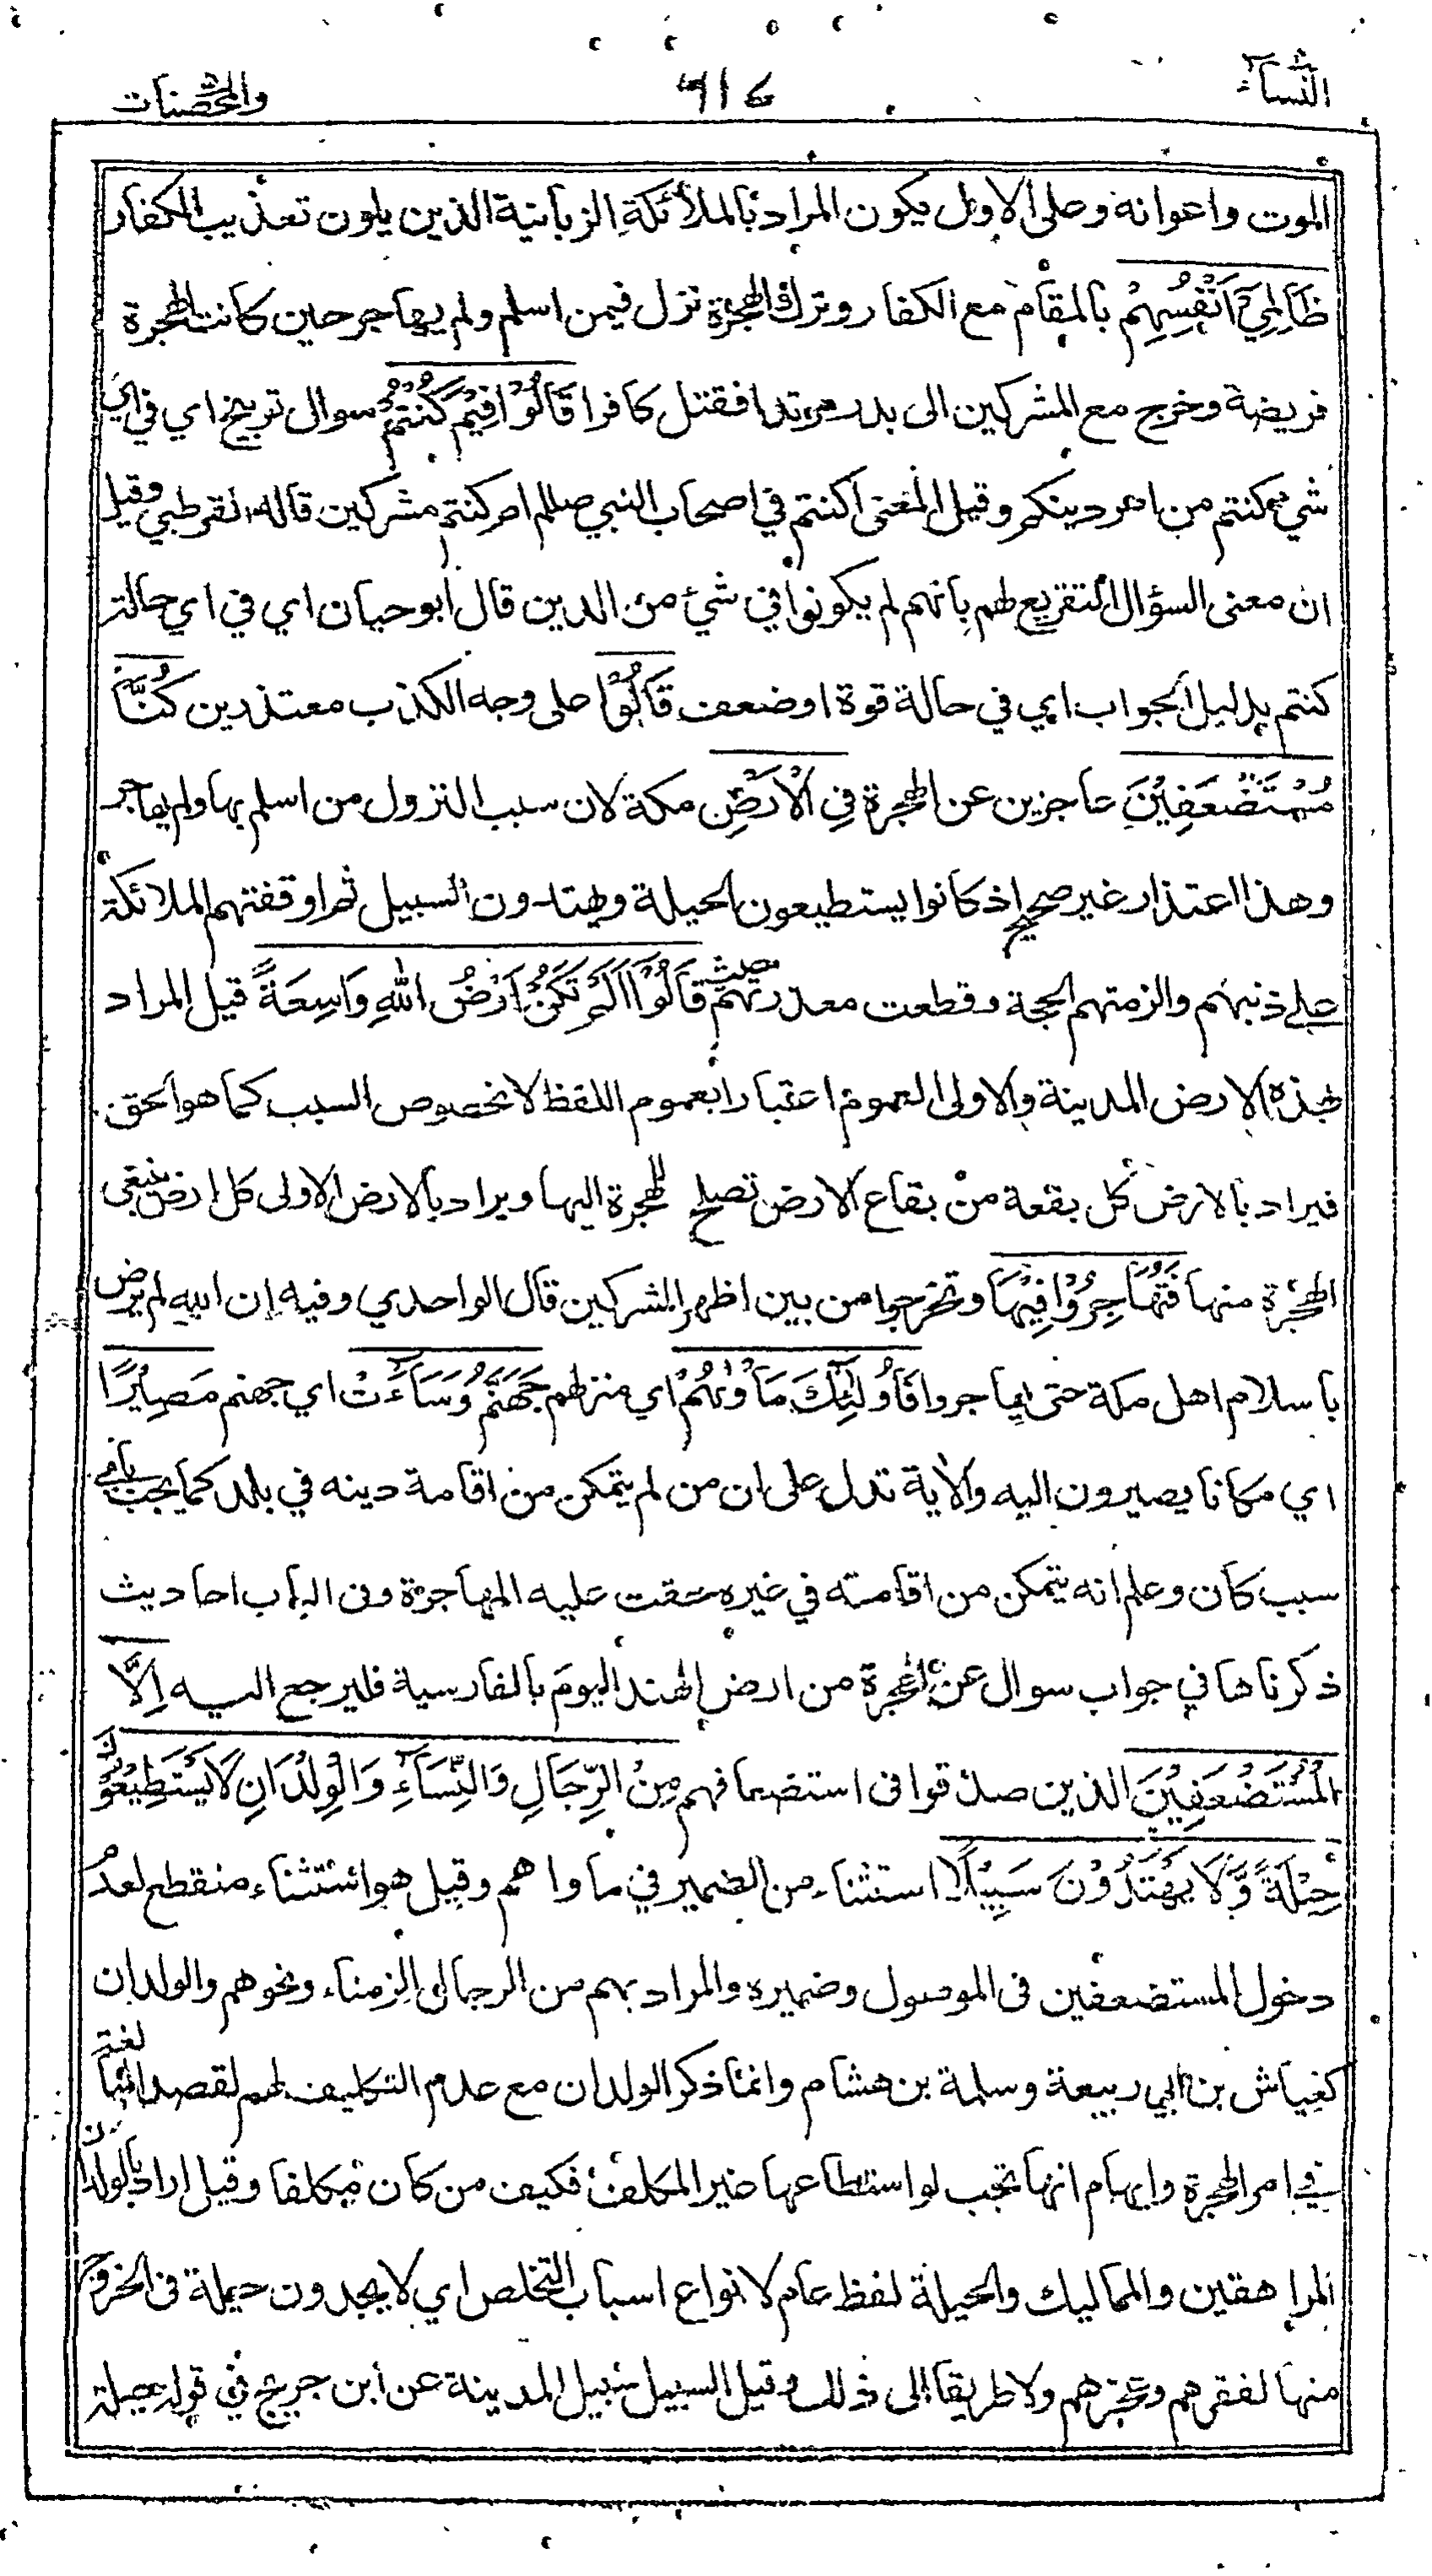 النسآء
٦١٤
والمحصنات
الموت واعوانه وعلى الاول يكون المراد بالملائكة الزبانية الذين يلون تعذيب الكفار
ظَالِمِيْٓ اَنْفُسِهِمْ بالمقام مع الكفار وترك الهجرة نزل فيمن اسلم ولم يهاجر حين كانت الهجرة
فريضة وخرج مع المشركين الى بدر مرتدا فقتل كافرا قَالُوْا فِيْمَ كُنْتُمْ سوال توبيخ اي في اي
شيء كنتم من امر دينكم وقيل المعنى أكنتم في اصحاب النبي صللم ام كنتم مشركين قاله القرطبي وقيل
ان معنى السؤال التقريع لهم بانهم لم يكونوا في شيء من الدين قال ابو حيان اي في اي حالة
كنتم بدليل الجواب اي في حالة قوة او ضعف قَالُوْا على وجه الكذب معتذرين كُنَّا
مُسْتَضْعَفِيْنَ عاجزين عن الهجرة فِي الْاَرْضِ مكة لان سبب النزول من اسلم بها ولم يهاجر
وهذا اعتذار غير صحيح اذ كانوا يستطيعون الحيلة ويهتدون السبيل ثم اوقفتهم الملائكة
على ذنبهم والزمتهم الحجة وقطعت معذرتهم حيث قَالُوْٓا اَلَمْ تَكُنْ اَرْضُ اللهِ وَاسِعَةً قيل المراد
بهذه الارض المدينة والاولى العموم اعتبارا بعموم اللفظ لا بخصوص السبب كما هو الحق
فيراد بالارض كل بقعة من بقاع الارض تصلح للهجرة اليها ويراد بالارض الاولى كل ارض ينبغي
الهجرة منها فَتُهَاجِرُوْا فِيْهَا وتخرجوا من بين اظهر المشركين قال الواحدي وفيه ان الله لم يرض
باسلام اهل مكة حتى يهاجروا فَاُولٰٓئِكَ مَاْوٰىهُمْ اي منزلهم جَهَنَّمُ وَسَآءَتْ اي جهنم مَصِيْرًا
اي مكانا يصيرون اليه والاية تدل على ان من لم يتمكن من اقامة دينه في بلد كما يجب باي
سبب كان وعلم انه يتمكن من اقامته في غيره حقت عليه المهاجرة وفى الباب احاديث
ذكرناها في جواب سوال عن الهجرة من ارض الهند اليوم بالفارسية فليرجع اليه اِلَّا
الْمُسْتَضْعَفِيْنَ الذين صدقوا فى استضعافهم مِنَ الرِّجَالِ وَالنِّسَآءِ وَالْوِلْدَانِ لَا يَسْتَطِيْعُوْنَ
حِيْلَةً وَّلَا يَهْتَدُوْنَ سَبِيْلًا استثناء من الضمير في ماواهم وقيل هو استثناء منقطع لعدم
دخول المستضعفين فى الموصول وضميره والمراد بهم من الرجال الزمناء ونحوهم والولدان
كعياش بن ابي ربيعة وسلمة بن هشام وانما ذكر الولدان مع عدم التكليف لهم لقصد المبالغة
في امر الهجرة وايهام انها تجب لو استطاعها غير المكلف فكيف من كان مكلفا وقيل اراد بالولدان
المراهقين والمماليك والحيلة لفظ عام لانواع اسباب التخلص اي لا يجدون حيلة فى الخروج
منها لفقرهم وعجزهم ولا طريقا الى ذلك وقيل السبيل سبيل المدينة عن ابن جريج في قوله حيلة